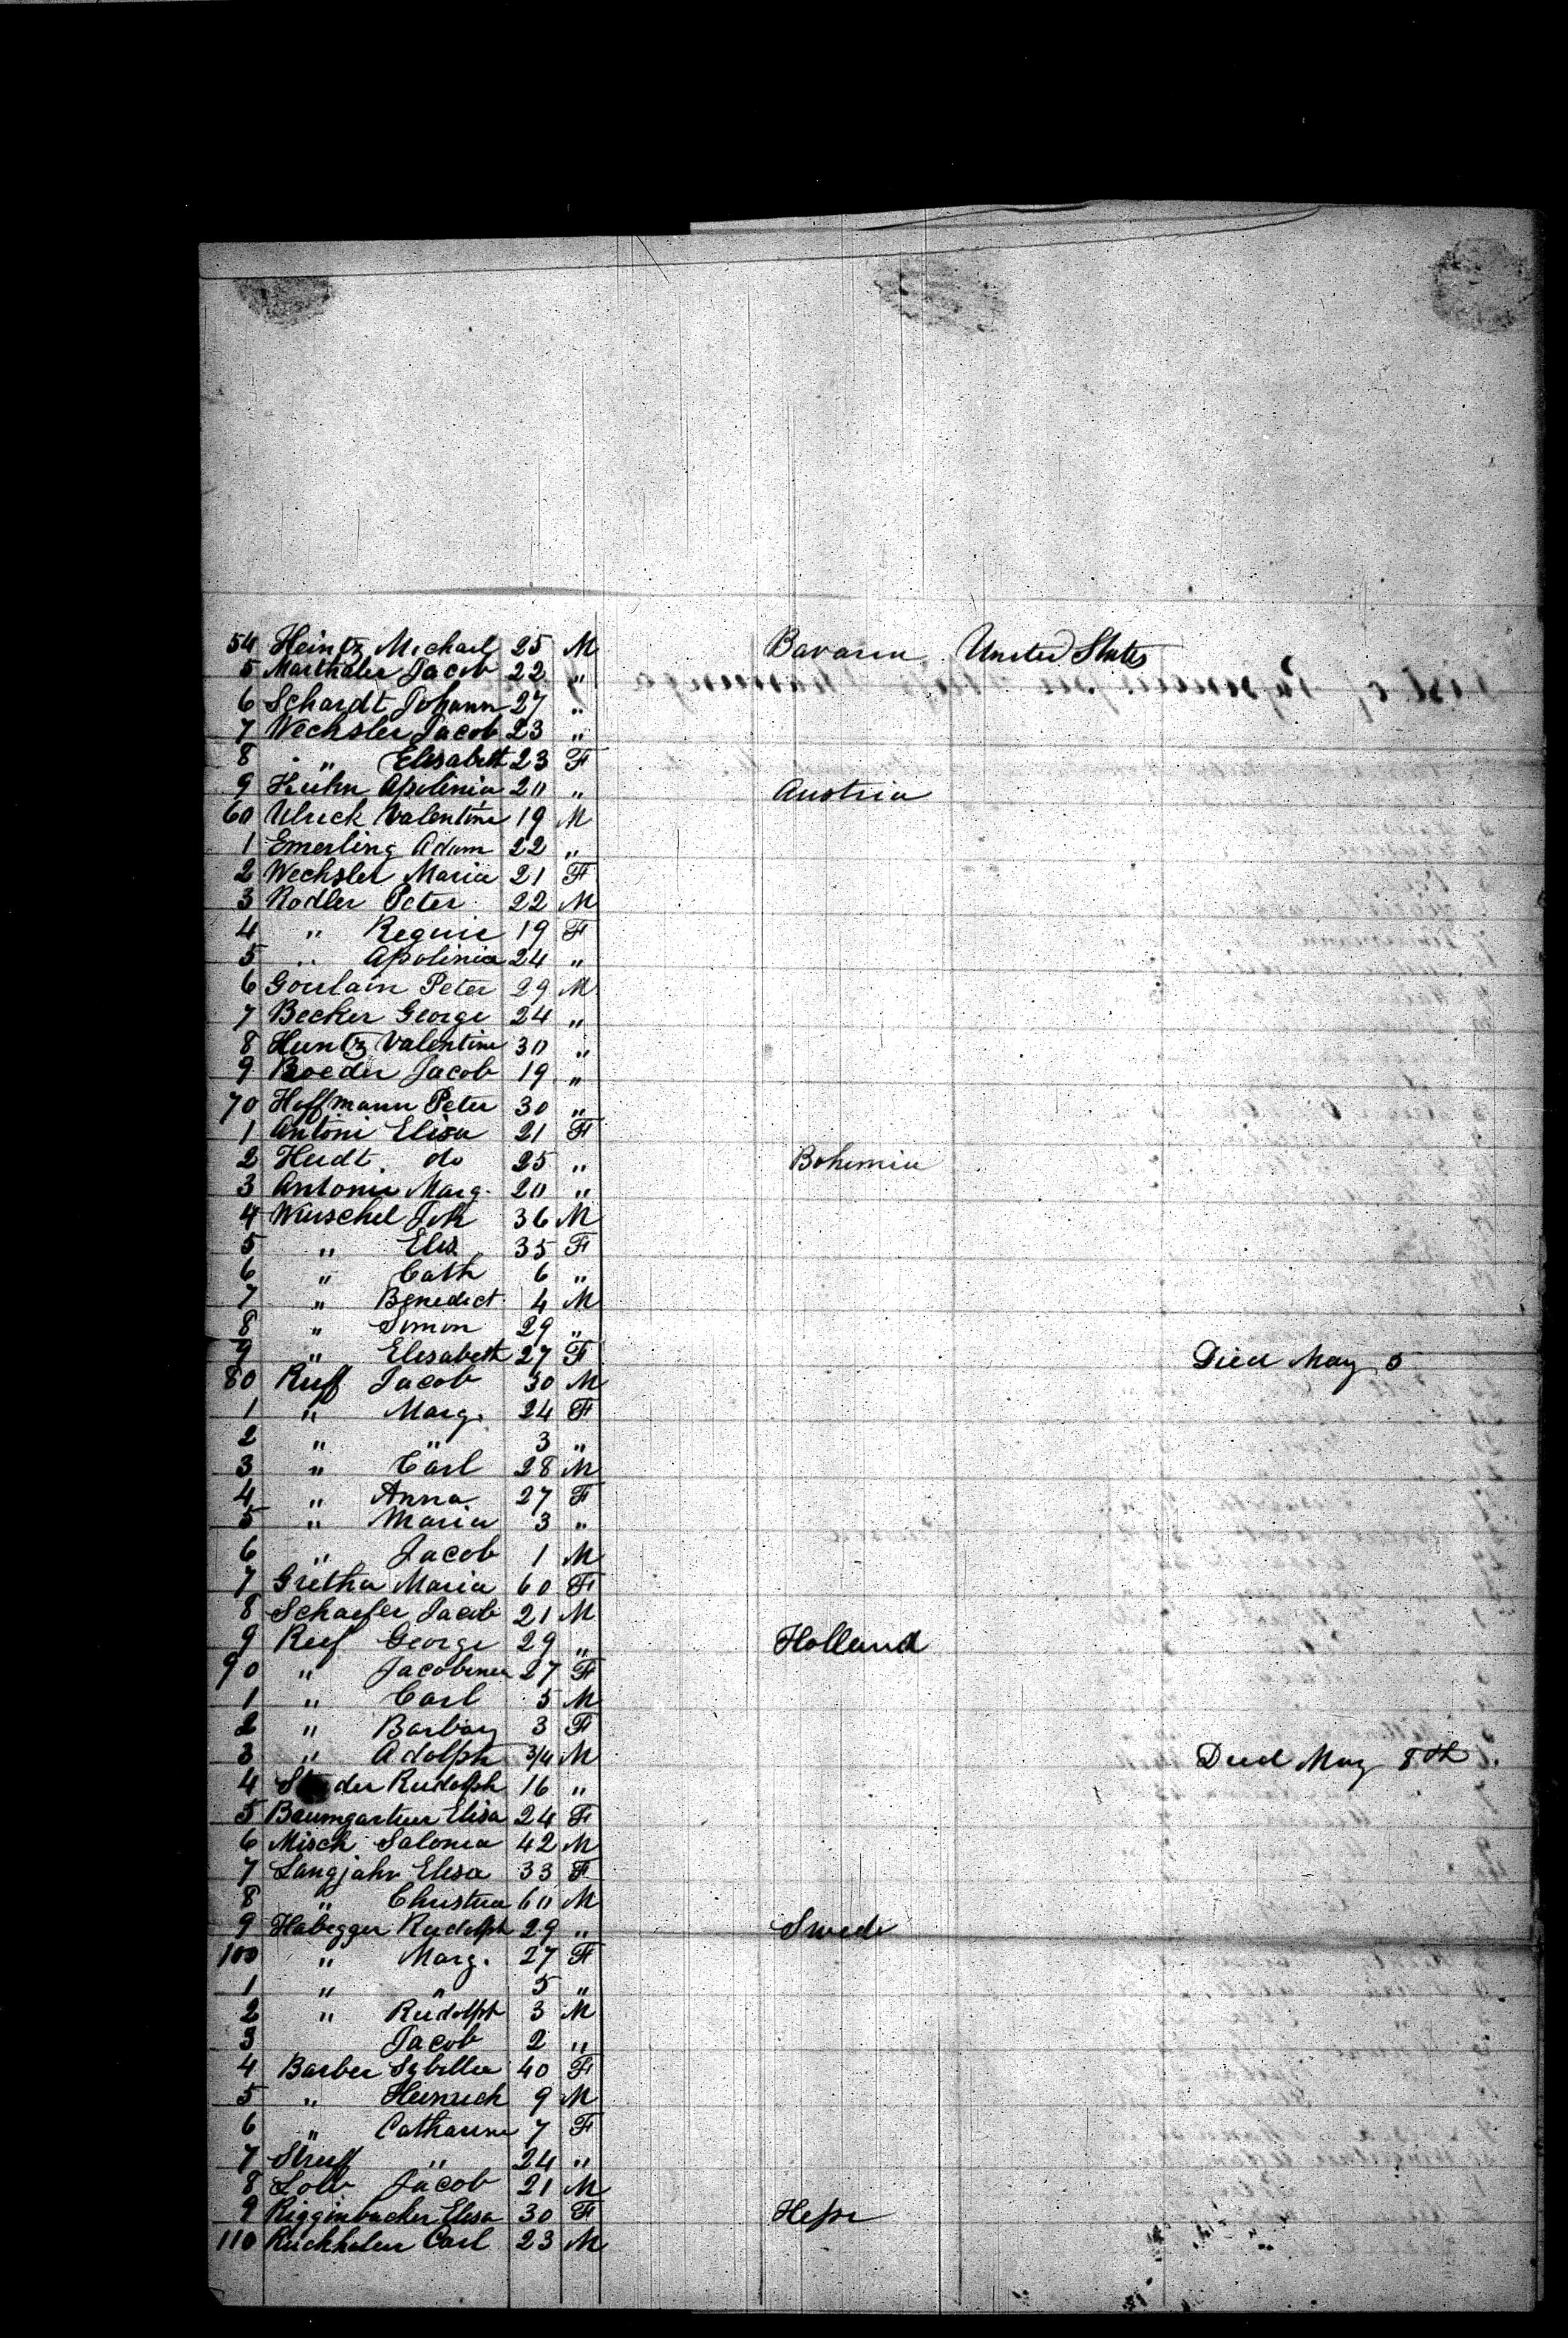 54 Heintz Michael 25 M Bavaria United States
5 Marthaler Jacob 22 "
6 Schardt Johann 27 "
7 Wechsler Jacob 23 "
8 " Elisabeth 23 F
9 Kuhn Apolinia 20 " Austria
60 Ulrick Valentine 19 M
1 Emerling Adam 22 "
2 Wechsler Maria 21 F
3 Rodler Peter 22 M
4 " Regine 19 F
5 " Apolinia 24 "
6 Goulain Peter 29 M
7 Becker George 24 "
8 Huntz Valentine 30 "
9 Boeder Jacob 19 "
70 Hoffmann Peter 30 "
1 Antoni Elisa 21 F
2 Heidt do 25 " Bohemia
3 Antoni Marg. 20 "
4 Wuschel Joh 36 M
5 " Elis 35 F
6 " Cath 6 "
7 " Benedict 4 M
8 " Simon 29 "
9 " Elisabeth 27 F Died May 5
80 Ruff Jacob 30 M
1 " Marg. 24 F
2 " " 3 "
3 " Carl 28 M
4 " Anna 27 F
5 " Maria 3 "
6 " Jacob 1 M
7 Gretha Maria 60 F
8 Schaefer Jacob 21 M
9 Ruf George 29 " Holland
90 " Jacobine 27 F
1 " Carl 5 M
2 " Barbay 3 F
3 " Adolph 3/4 M Died May 8th
4 Rudolph 16 "
5 Baumgartner Elisa 24 F
6 Misch Salomea 42 M
7 Langjahr Elisa 33 F
8 " Christina 60 M
9 Habegger Rudolph 29 " Swede
100 " Marg. 27 F
1 " " 5 "
2 " Rudolph 3 M
3 Jacob 2 "
4 Barber Sybilla 40 F
5 " Heinrich 9 M
6 " Catharine 7 F
7 Struff " 24 "
8 Loeb Jacob 21 M
9 Rigginbacher Elisa 30 F Hesse
110 Carl 23 M